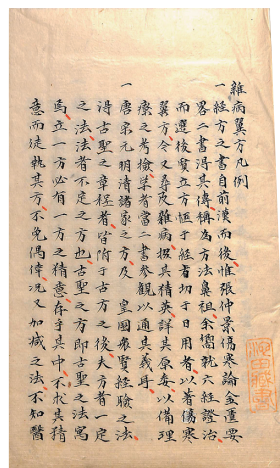 雜病翼方凡例
一經方之書自前漢而後惟張仲景傷寒論金匱要
畧二書得其傳稱為方法鼻祖余嚮就六經證治
而選後賢立方恆于經旨切于日用者以著傷寒
翼方今又尋及雜病掇其精英詳其原委以備理
療之考撿學者當二書參觀以通其義耳
一唐宋元明清諸家之方及 皇國瘦賢經驗之法
得古聖之章程者皆附于古方之後夫方者一定
之法法者不定之方也古聖之方即古聖之法寓
焉立一方必有一方之精意存乎其中不求其精
意而徒執其方不免偶倖況又加減之法不知醫